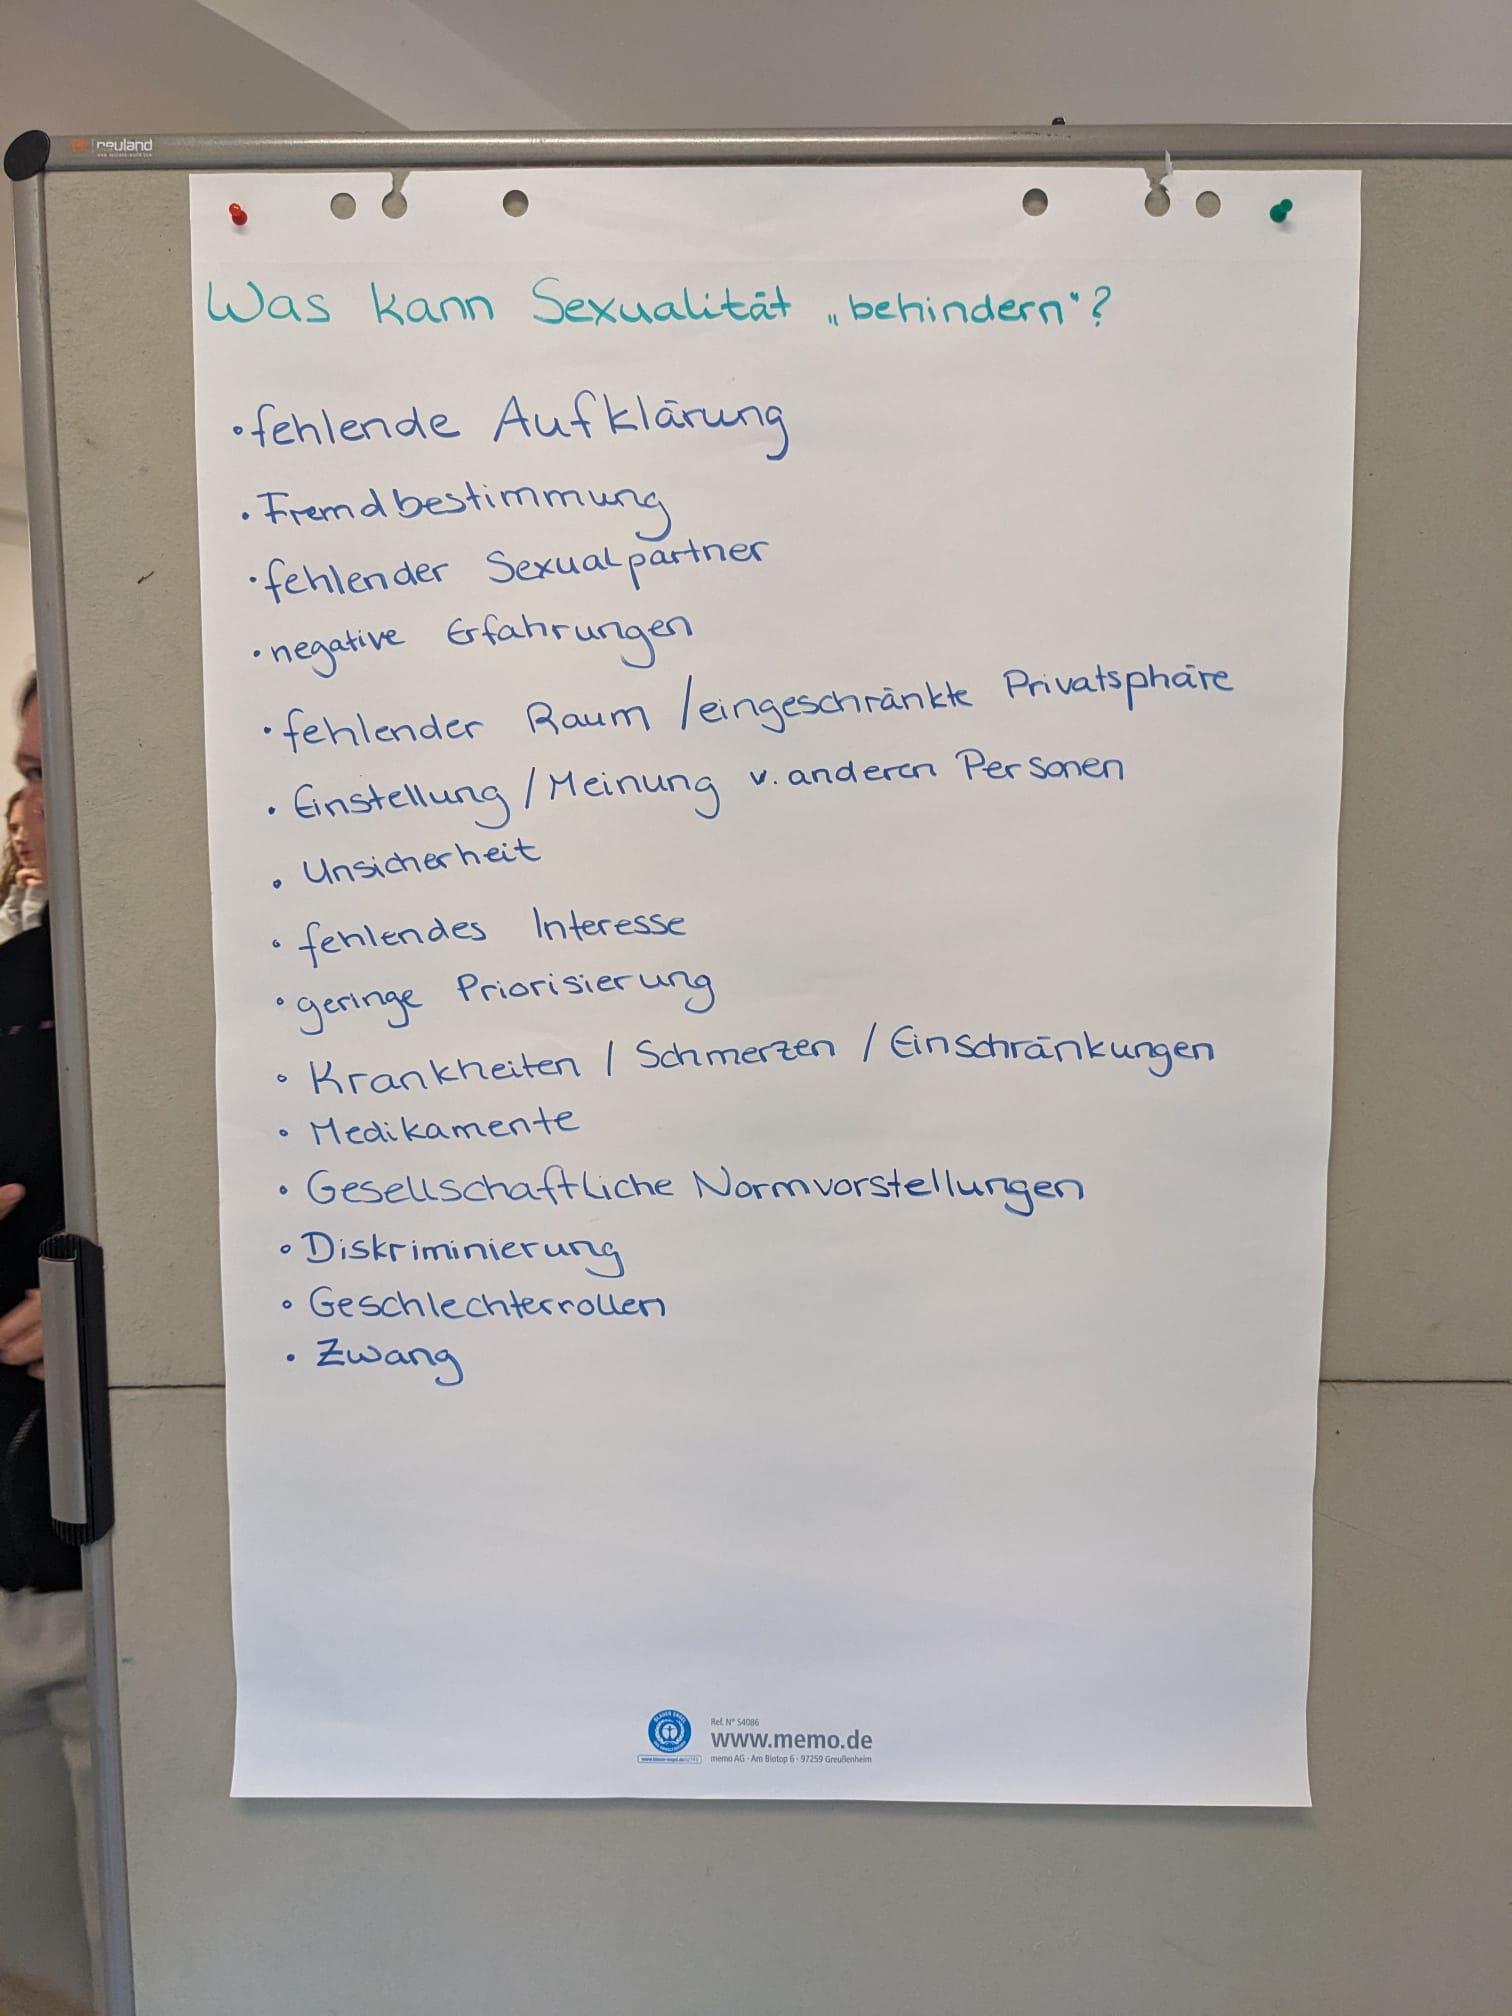 neuland
Was kann Sexualität „behindern"?
• fehlende Aufklärung
• Fremdbestimmung
• fehlender Sexualpartner
• negative Erfahrungen
• fehlender Raum / eingeschränkte Privatsphäre
• Einstellung / Meinung v. anderen Personen
• Unsicherheit
• fehlendes Interesse
• geringe Priorisierung
• Krankheiten / Schmerzen / Einschränkungen
• Medikamente
• Gesellschaftliche Normvorstellungen
• Diskriminierung
• Geschlechterrollen
• Zwang
Ref. N° S4086
www.memo.de
memo AG · Am Biotop 6 · 97259 Greußenheim